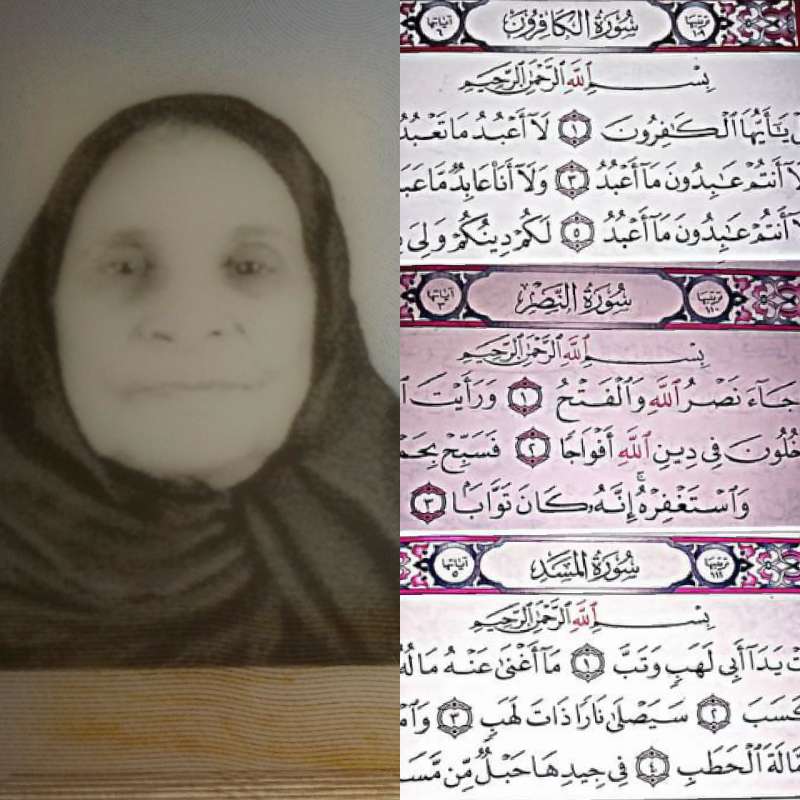 ترتيبها ١٠٩ سُورَةُ الكَافِرُونَ آياتها ٦
بِسْمِ ٱللَّهِ ٱلرَّحْمَٰنِ ٱلرَّحِيمِ
يَٰٓأَيُّهَا ٱلْكَٰفِرُونَ ١ لَآ أَعْبُدُ مَا تَعْبُدُ
أَنتُمْ عَٰبِدُونَ مَآ أَعْبُدُ ٣ وَلَآ أَنَا۠ عَابِدٌ مَّا عَبَ
أَنتُمْ عَٰبِدُونَ مَآ أَعْبُدُ ٥ لَكُمْ دِينُكُمْ وَلِىَ
ترتيبها ١١٠ سُورَةُ النَّصْرِ آياتها ٣
بِسْمِ ٱللَّهِ ٱلرَّحْمَٰنِ ٱلرَّحِيمِ
جَآءَ نَصْرُ ٱللَّهِ وَٱلْفَتْحُ ١ وَرَأَيْتَ ٱ
خُلُونَ فِى دِينِ ٱللَّهِ أَفْوَاجًا ٢ فَسَبِّحْ بِحَمْ
وَٱسْتَغْفِرْهُ ۚ إِنَّهُۥ كَانَ تَوَّابًۢا ٣
ترتيبها ١١١ سُورَةُ المَسَدِ آياتها ٥
بِسْمِ ٱللَّهِ ٱلرَّحْمَٰنِ ٱلرَّحِيمِ
تْ يَدَآ أَبِى لَهَبٍ وَتَبَّ ١ مَآ أَغْنَىٰ عَنْهُ مَالُهُ
كَسَبَ ٢ سَيَصْلَىٰ نَارًا ذَاتَ لَهَبٍ ٣ وَٱمْ
مَّالَةَ ٱلْحَطَبِ ٤ فِى جِيدِهَا حَبْلٌ مِّن مَّسَ